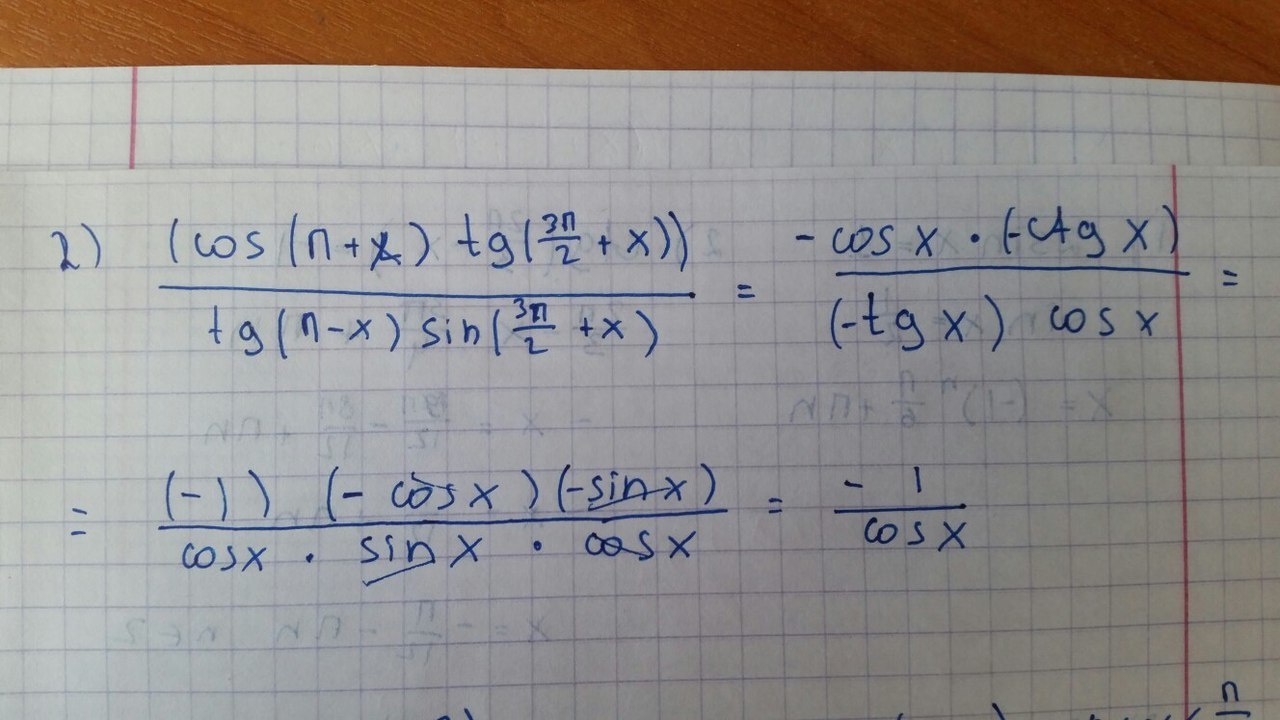 2) (cos(π+x) tg(3π/2 + x)) / tg(π-x) sin(3π/2 +x) = - cos x · (-ctg x) / (-tg x) cos x =
= (-1) (- cos x) (-sin x) / cos x · sin x · cos x = - 1 / cos x